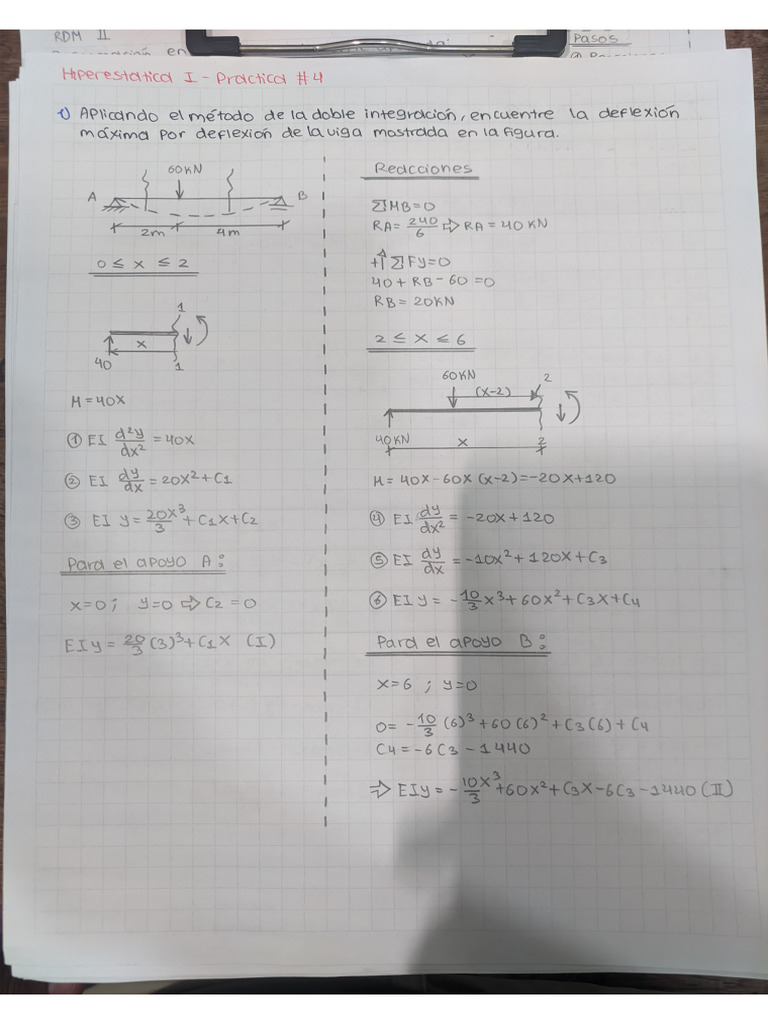 RDM II
en
Pasos
Hiperestatica I - Practica #4
1) Aplicando el método de la doble integración, encuentre la deflexión
máxima por deflexion de la viga mostrada en la figura.
60KN
A
B
2m
4m
0 ≤ x ≤ 2
1
x
40
1
M = 40x
① EI d²y/dx² = 40x
② EI dy/dx = 20x² + C1
③ EI y = 20x³/3 + C1x + C2
Para el apoyo A:
x=0; y=0 ⇒ C2 = 0
EIy = 20/3 (3)³ + C1x (I)
Reacciones
ΣMB=0
RA= 240/6 ⇒ RA = 40 KN
+↑ ΣFy=0
40 + RB - 60 = 0
RB = 20KN
2 ≤ x ≤ 6
60KN
(x-2)
2
40KN
x
2
M = 40x-60x(x-2)=-20x+120
④ EI dy/dx² = -20x+120
⑤ EI dy/dx = -10x² + 120x + C3
⑥ EIy = -10/3 x³ + 60x² + C3x + C4
Para el apoyo B:
x=6 ; y=0
0= -10/3 (6)³ + 60(6)² + C3(6) + C4
C4 = -6C3 - 1440
⇒ EIy = -10x³/3 + 60x² + C3x - 6C3 - 1440 (II)